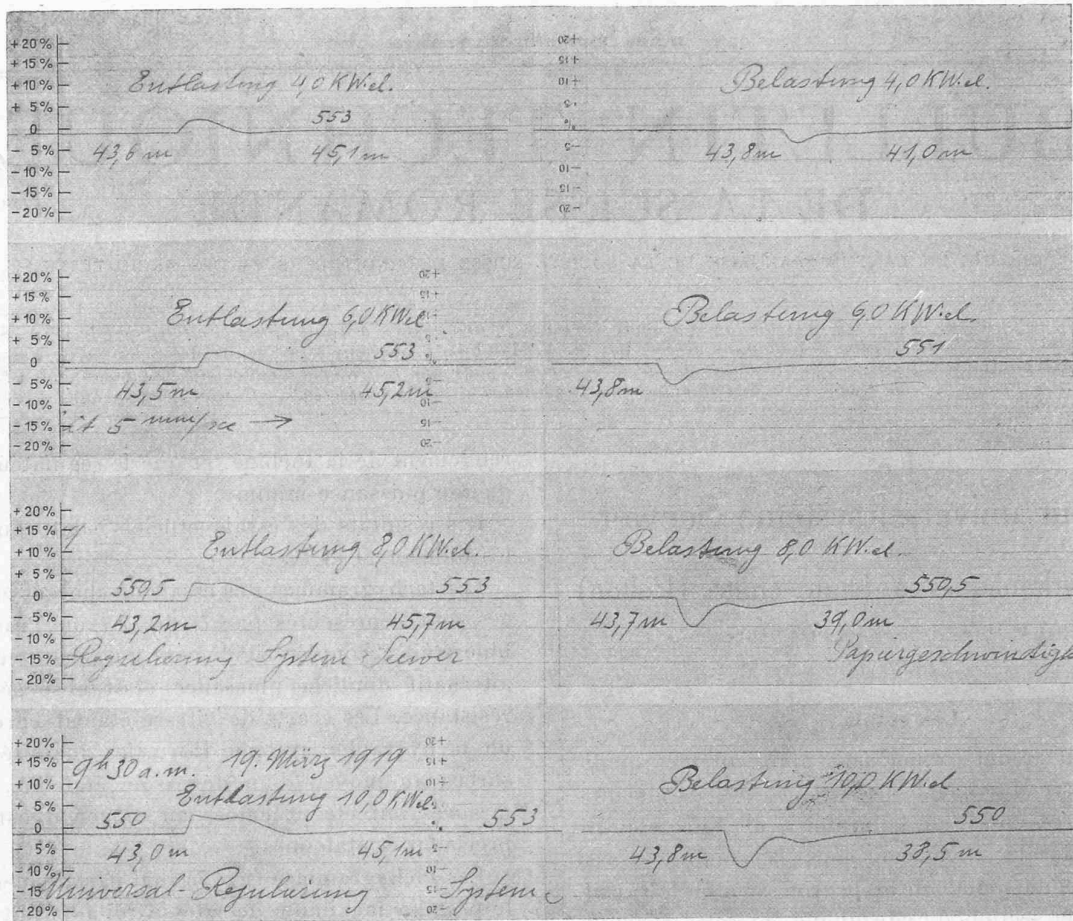 +20%
+15%
+10%
+ 5%
0
- 5%
-10%
-15%
-20%
Entlastung 4,0 KW.el.
553
43,6 m 45,1 m
Belastung 4,0 KW.el.
43,8 m 41,0 m
+20%
+15%
+10%
+ 5%
0
- 5%
-10%
-15%
-20%
Entlastung 6,0 KW.el
553
43,5 m 45,2 m
5 mm/sec →
Belastung 6,0 KW.el.
551
43,8 m
+20%
+15%
+10%
+ 5%
0
- 5%
-10%
-15%
-20%
Entlastung 8,0 KW.el.
559,5 553
43,2 m 45,7 m
Regulierung System Seewer
Belastung 8,0 KW.el.
550,5
43,7 m 39,0 m
Papiergeschwindigk
+20%
+15%
+10%
+ 5%
0
- 5%
-10%
-15%
-20%
9h 30 a.m. 19. März 1919
Entlastung 10,0 KW.el.
550 553
43,0 m 45,1 m
Universal-Regulierung System
Belastung 10,0 KW.el
550
43,8 m 38,5 m